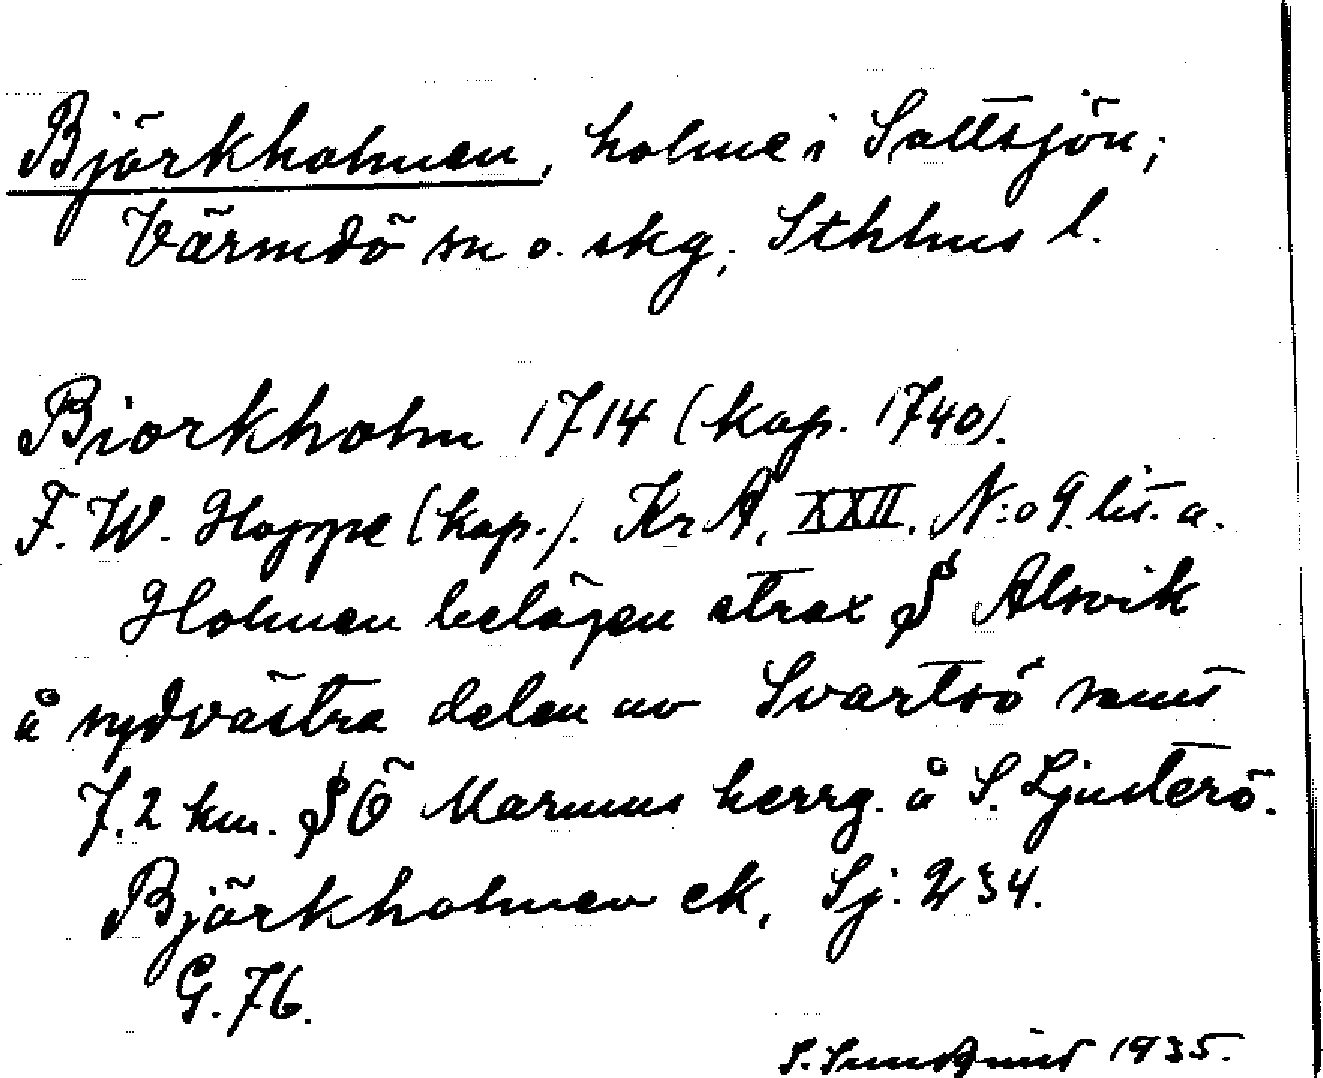 Björkholmen, holme i Saltsjön;
Värmdö sn o. skg, Sthlms l.
Biorkholm 1714 (kop. 1740).
F. W. Hoppe (kop.). Kr A, XXII. N:o 9. lit. a.
Holmen belägen strax S Alsvik
å sydvästra delen av Svartsö samt
7,2 km. SÖ Marmus herrg. å S. Ljusterö.
Björkholmen ek, Sj. 234.
G. 76.
S. Sundqvist 1935.